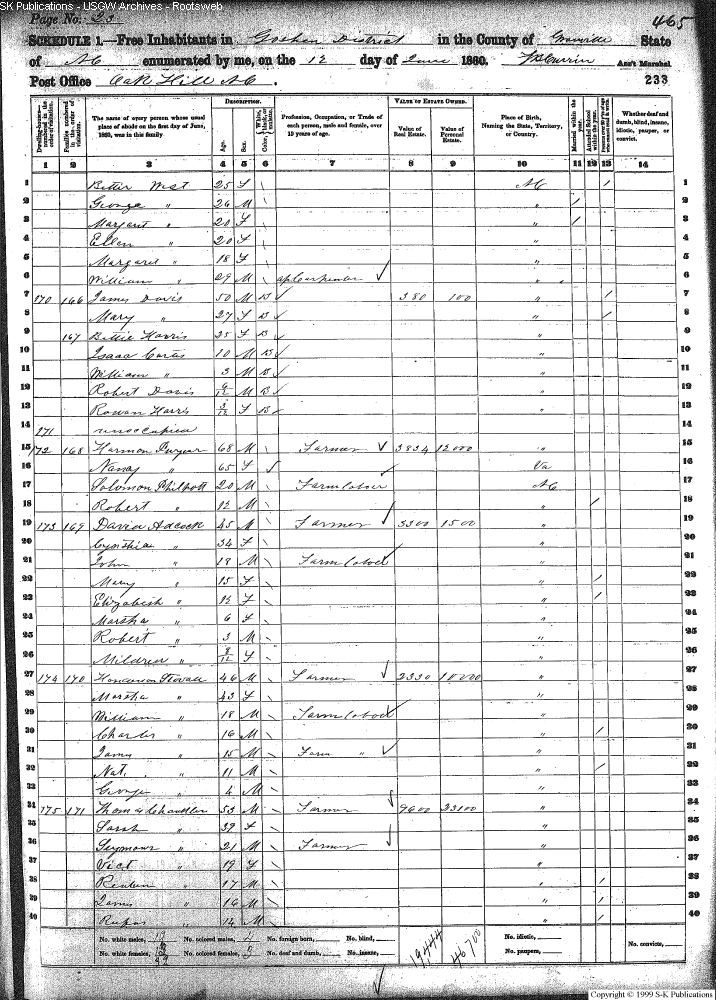 SK Publications - USGW Archives - Rootsweb
Page No. 23
465
SCHEDULE 1.—Free Inhabitants in Goshen District in the County of Granville State
of NC enumerated by me, on the 12 day of June 1860. Ass't Marshal
Post Office Oak Hill NC. 233
Dwelling-houses—numbered in the order of visitation.
Families numbered in the order of visitation.
The name of every person whose usual place of abode on the first day of June, 1860, was in this family.
DESCRIPTION.
Age.
Sex.
Color, White, black, or mulatto.
Profession, Occupation, or Trade of each person, male and female, over 15 years of age.
VALUE OF ESTATE OWNED.
Value of Real Estate.
Value of Personal Estate.
Place of Birth, Naming the State, Territory, or Country.
Married within the year.
Attended School within the year.
Whether deaf and dumb, blind, insane, idiotic, pauper, or convict.
1 2 3 4 5 6 7 8 9 10 11 12 13 14
1 West 25 F \ NC / 1
2 George " 26 M \ " / 2
3 Margaret " 20 F \ " / 3
4 Ellen " 20 F \ " 4
5 Margaret " 18 F \ " 5
6 William " 29 M \ ap Carpenter ✓ " 6
7 170 166 James Davis 50 M B ✓ 380 100 " / 7
8 Mary " 27 F B ✓ " / 8
9 167 Bettie Harris 25 F B ✓ " 9
10 Isaac 10 M B ✓ " 10
11 William " 3 M B ✓ " 11
12 Robert Davis 6/12 M B ✓ " 12
13 Rowan Harris 3/12 F B ✓ " 13
14 171 unoccupied 14
15 172 168 Harmon Puryear 68 M Farmer ✓ 3834 12000 " 15
16 Nancy " 65 F ✓ Va 16
17 Solomon Philpott 20 M \ Farm Labor ✓ NC 17
18 Robert " 12 M \ " / 18
19 173 169 David Adcock 45 M \ Farmer ✓ 3300 1500 " 19
20 Cynthia " 34 F \ " 20
21 John " 18 M \ Farm Labor ✓ " 21
22 Mary " 15 F \ " / 22
23 Elizabeth " 12 F \ " / 23
24 Martha " 6 F \ " 24
25 Robert " 3 M \ " 25
26 Mildred " 8/12 F \ " 26
27 174 170 Henderson Stovall 46 M \ Farmer ✓ 2330 10000 " 27
28 Martha " 43 F \ " 28
29 William " 18 M \ Farm Labor ✓ " 29
30 Charles " 16 M \ " / 30
31 James " 15 M \ Farm " ✓ " 31
32 Nat. " 11 M \ " / 32
33 George " 4 M \ " 33
34 175 171 Thomas Chandler 53 M \ Farmer ✓ 9600 23100 " 34
35 Sarah " 39 F \ " 35
36 Seymour " 21 M \ Farmer ✓ " 36
37 Vict " 19 F \ " 37
38 Reuben " 17 M \ " / 38
39 James " 16 M \ " / 39
40 Rufus " 14 M \ " / 40
No. white males, No. colored males, No. foreign born, No. blind, No. idiotic, No. convicts,
No. white females, No. colored females, No. deaf and dumb, No. insane, No. paupers,
19444 46700
Copyright © 1999 S-K Publications